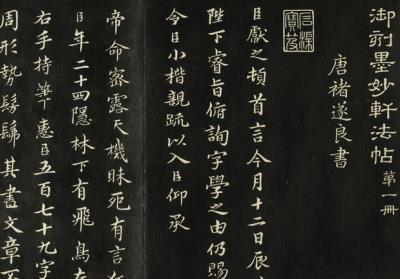 御刻墨妙軒法帖 第一冊
唐褚遂良書
臣獻之頓首言今月十二日辰
陛下睿旨俯詢字學之由仍賜
令臣小楷親疏以入臣仰承
帝命密露天機昧死有言
臣年二十四隱林下有飛鳥
右手持筆惠臣五百七十九字
周形勢髣髴其書文章